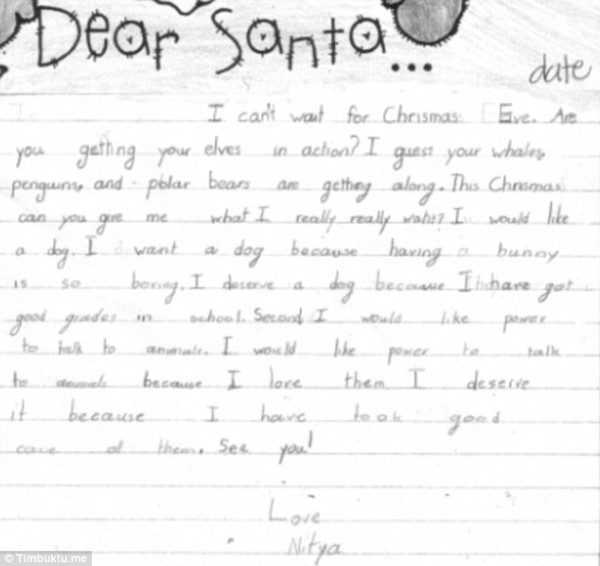 Dear Santa...
date
I can't wait for Chrismas Eve. Are
you getting your elves in action? I guest your whales,
penguins, and polar bears are getting along. This Chrismas
can you give me what I really really waht? I would like
a dog. I want a dog because having a bunny
is so boring. I deserve a dog because I have got
good grades in school. Second I would like power
to talk to animals. I would like power to talk
to animals because I love them. I deserve
it because I have took good
care of them. See you!
Love
Nitya
© Timbuktu.me